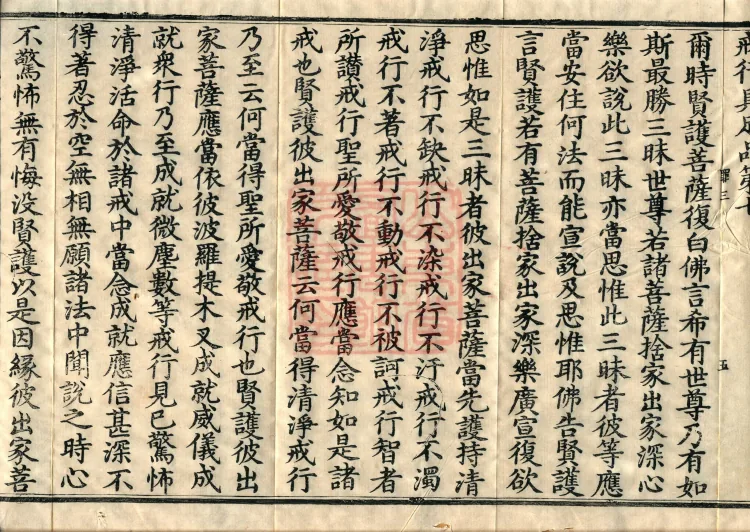 戒行具足品第十
爾時賢護菩薩復白佛言希有世尊乃有如
斯最勝三昧世尊若諸菩薩捨家出家深心
樂欲說此三昧亦當思惟此三昧者彼等應
當安住何法而能宣說及思惟耶佛告賢護
言賢護若有菩薩捨家出家深樂廣宣復欲
思惟如是三昧者彼出家菩薩當先護持清
淨戒行不缺戒行不染戒行不汙戒行不濁
戒行不著戒行不動戒行不被訶戒行智者
所讃戒行聖所愛敬戒行應當念知如是諸
戒也賢護彼出家菩薩云何當得清淨戒行
乃至云何當得聖所愛敬戒行也賢護彼出
家菩薩應當依彼波羅提木叉成就威儀成
就衆行乃至成就微塵數等戒行見已驚怖
清淨活命於諸戒中當念成就應信甚深不
得著忍於空無相無願諸法中聞說之時心
不驚怖無有悔没賢護以是因縁彼出家菩
五